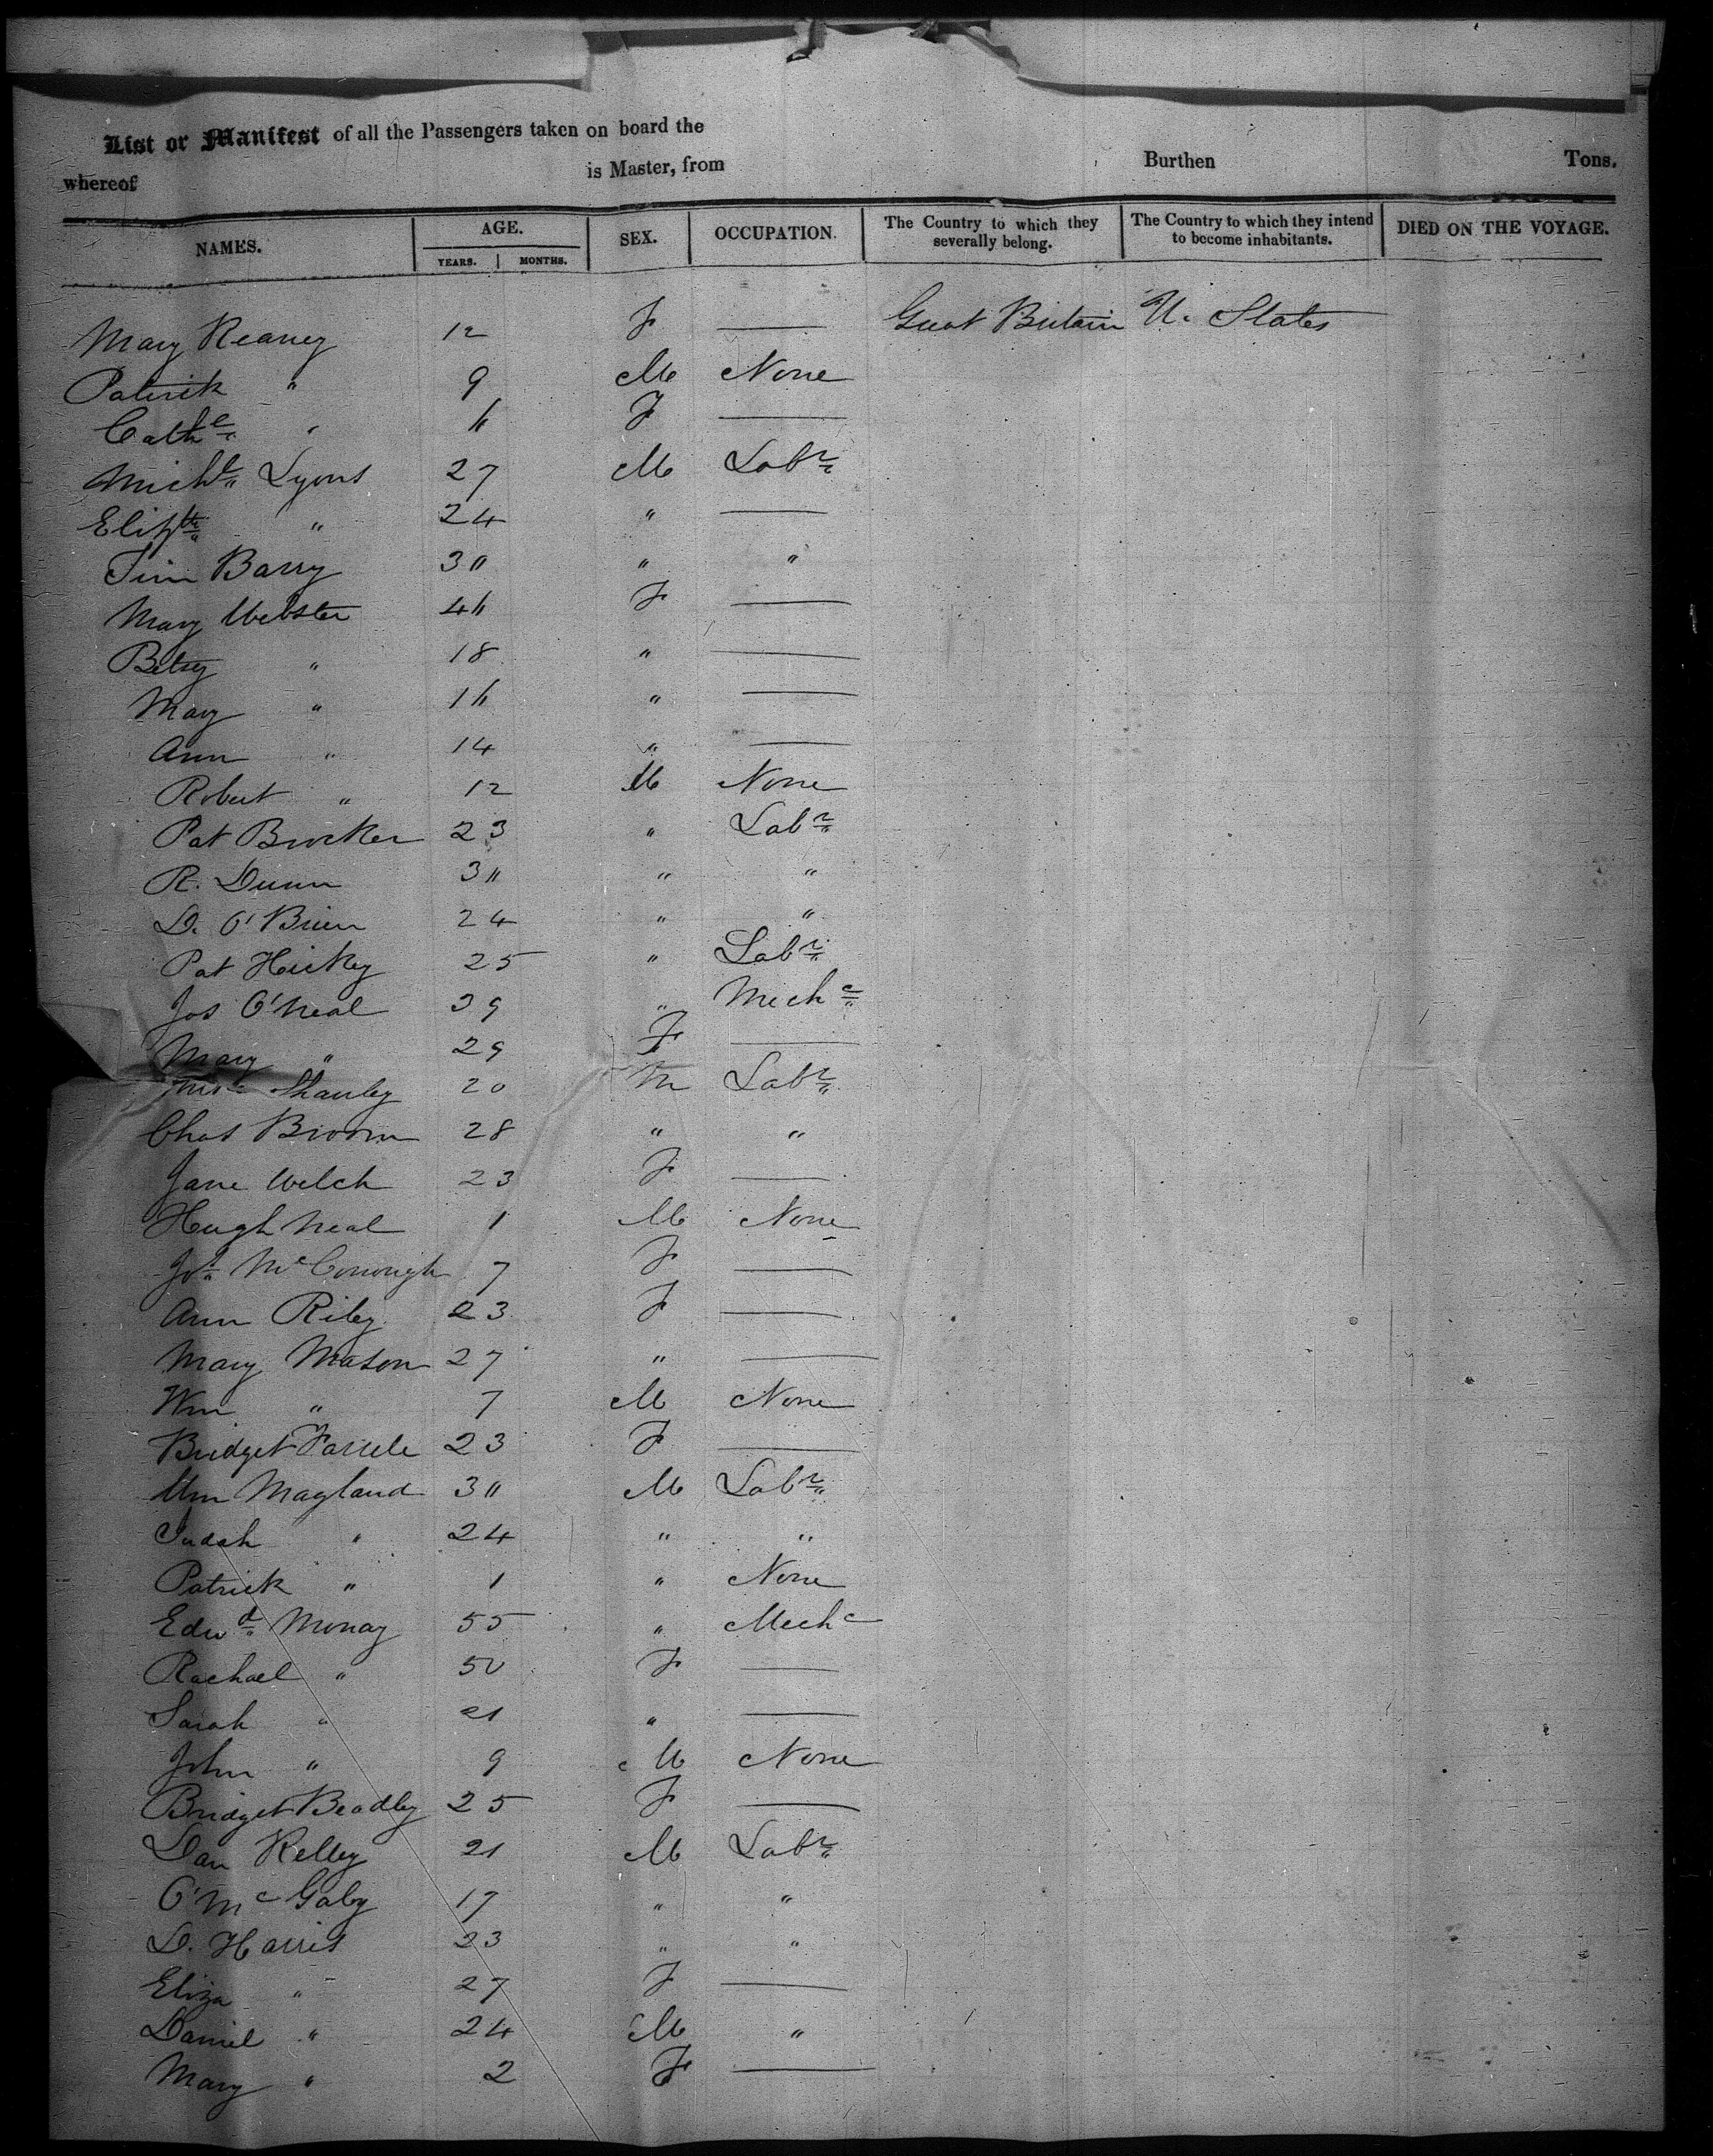 List or Manifest of all the Passengers taken on board the
whereof is Master, from Burthen Tons.
NAMES. AGE. YEARS. MONTHS. SEX. OCCUPATION. The Country to which they severally belong. The Country to which they intend to become inhabitants. DIED ON THE VOYAGE.
Mary Reaney 12 F — Great Britain U. States
Patrick " 9 M None
Cathe " 6 F —
Michl Lyons 27 M Labr
Elizth " 24 " —
Tim Barry 30 " "
Mary Webster 46 F —
Betsy " 18 " —
Mary " 16 " —
Ann " 14 " —
Robert " 12 M None
Pat 23 " Labr
R. Dunn 30 " "
D. O'Brien 24 " "
Pat Hickey 25 " Labr
Jos O'Neal 39 " Mechc
Mary " 29 F —
Shanley 20 M Labr
Chas Broom 28 " "
Jane Welch 23 F —
Hugh Neal 1 M None
McConough 7 F —
Ann Riley 23 F —
Mary Mason 27 " —
Wm " 7 M None
Bridget 23 F —
Wm Magland 30 M Labr
Judah " 24 " "
Patrick " 1 " None
Edwd 55 " Mechc
Rachael " 50 F —
Sarah " 21 " —
John " 9 M None
Bridget Beadley 25 F —
Dan Kelley 21 M Labr
O' McGaby 17 " "
D. Harris 23 " "
Eliza " 27 F —
Daniel " 24 M "
Mary " 2 F —